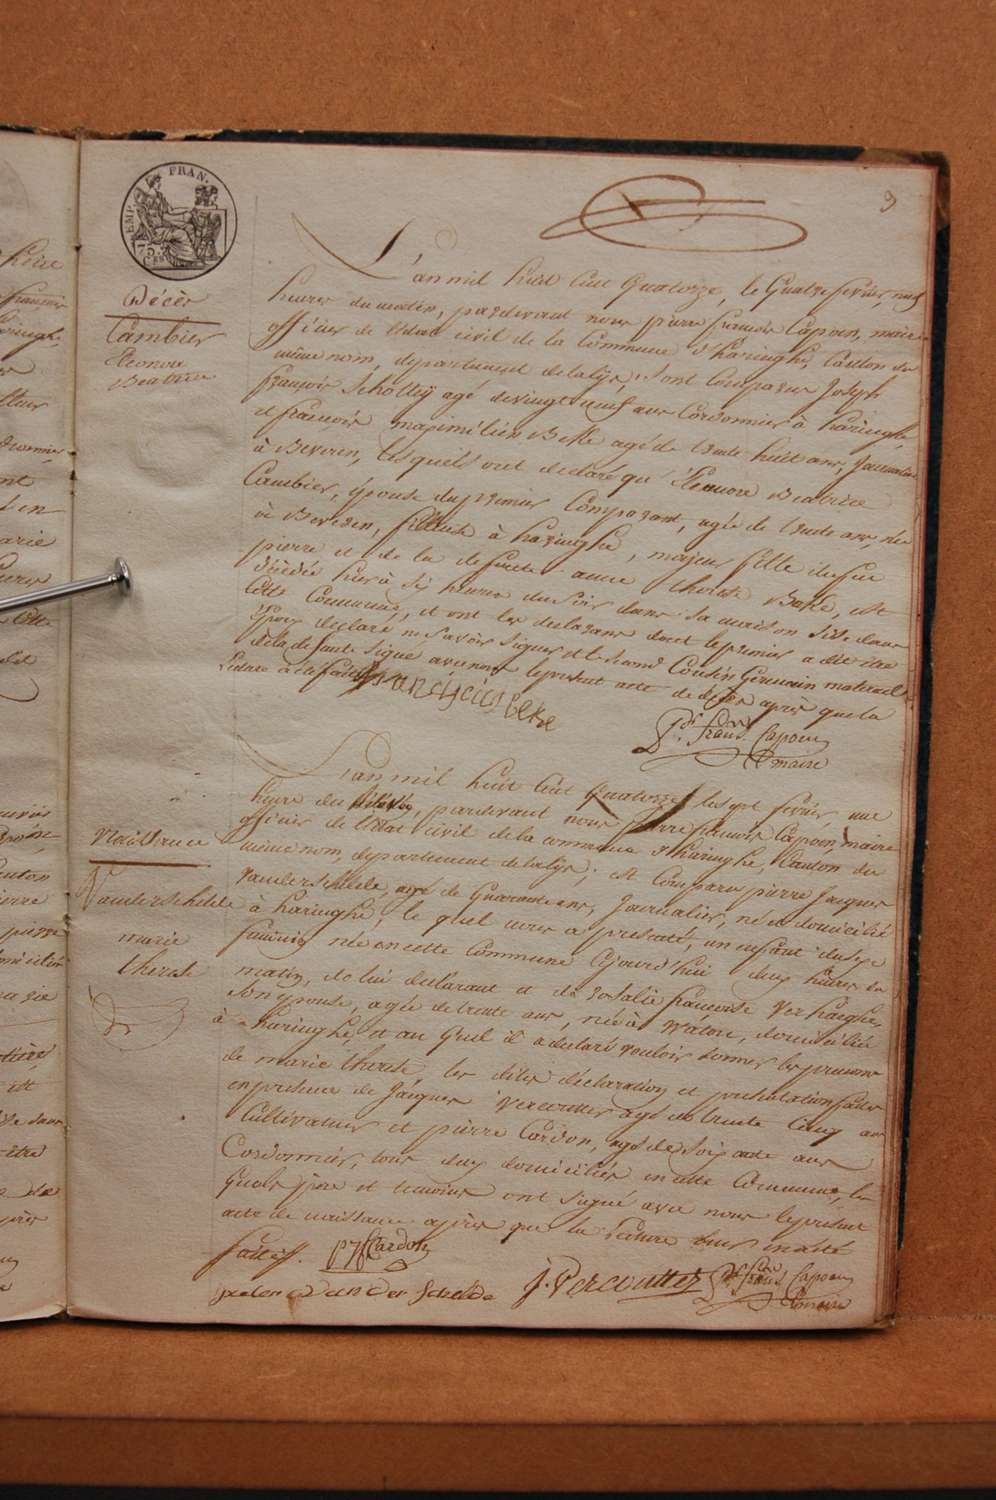 9
EMP. FRAN.
75 C.
Décès
Cambier
Eleonore
Beatrice
L'an mil huit cent Quatorze, le Quatre fevrier, neuf
heures du matin, pardevant nous pierre françois Capoen, maire
officier de l'état civil de la Commune d'haringhe, Canton du
même nom, departement de la lys, sont comparus Joseph
françois Scholtey agé de vingt neuf ans Cordonnier à haringhe,
et françois maximilien Beke agé de trente huit ans, Journalier
à Beveren, lesquels ont declaré qu'Eleonore Beatrice
Cambier, épouse du premier Comparant, agée de trente ans, née
à Beveren, fileuse à haringhe, majeur fille de feu
pierre et de la defunte anne therese Beke, est
décédée hier à six heures du soir dans sa maison sise dans
cette Commune, et ont les declarans dont le premier a dit être
époux declaré ne savoir signer et le second Cousin Germain maternel
de la defunte signé avec nous le present acte de décès après que la
lecture a été faite franciscus beke
P.re Franc. Capoen
maire
Naissance
Vanderschelde
marie
therese
L'an mil huit cent Quatorze, le sept fevrier une
heure du relevée, pardevant nous pierre françois Capoen, maire
officier de l'état civil de la commune d'haringhe, Canton du
même nom, departement de la lys; est comparu pierre Jacques
Vanderschelde, agé de Quarante ans, Journalier, né et domicilié
à haringhe, le quel nous a presenté, un enfant du sexe
feminin née en cette Commune Cejourd'hui deux heures du
matin, de lui declarant et de rosalie françoise Verhaeghe,
son épouse, agée de trente ans, née à Watou, domiciliée
à haringhe, et au Quel il a declaré vouloir donner les prenoms
de marie therese, les dites déclaration et presentation faites
en presence de Jacques Vercoutter agé de trente Cinq ans
Cultivateur et pierre Cardon, agé de soixante ans
Cordonnier, tous deux domiciliés en cette Commune, les
Quels père et temoins ont signé avec nous le present
acte de naissance après que la lecture leur en a été
faite. P J Cardon
pieter vander schelde J. Vercoutter P.re Franc. Capoen
maire